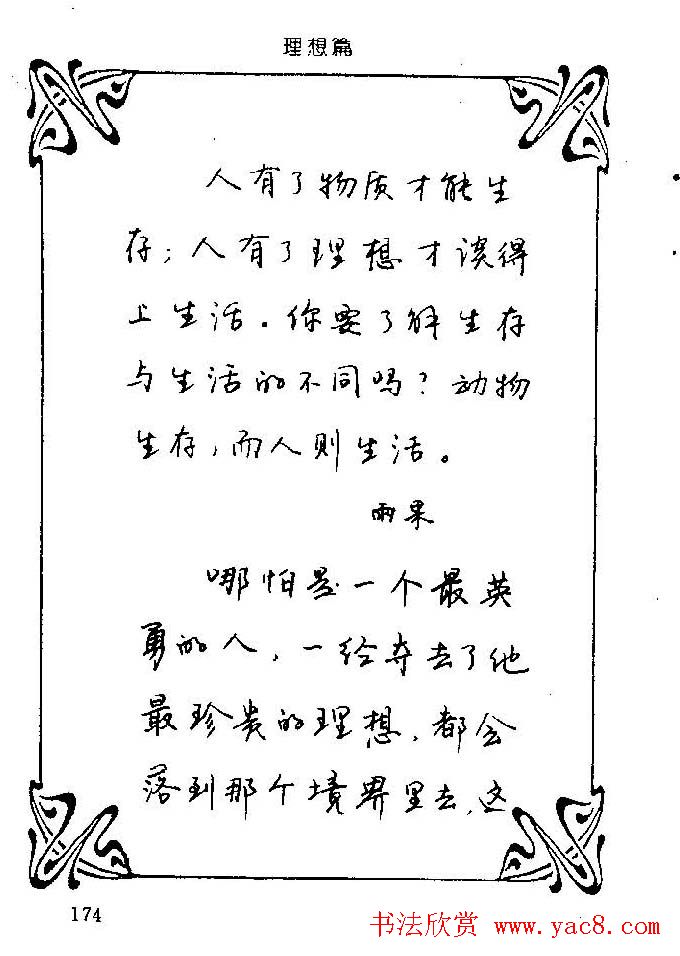 理想篇
人有了物质才能生
存；人有了理想才谈得
上生活。你要了解生存
与生活的不同吗？动物
生存，而人则生活。
雨果
哪怕是一个最英
勇的人，一经夺去了他
最珍贵的理想，都会
落到那个境界里去，这
174
书法欣赏 www.yac8.com